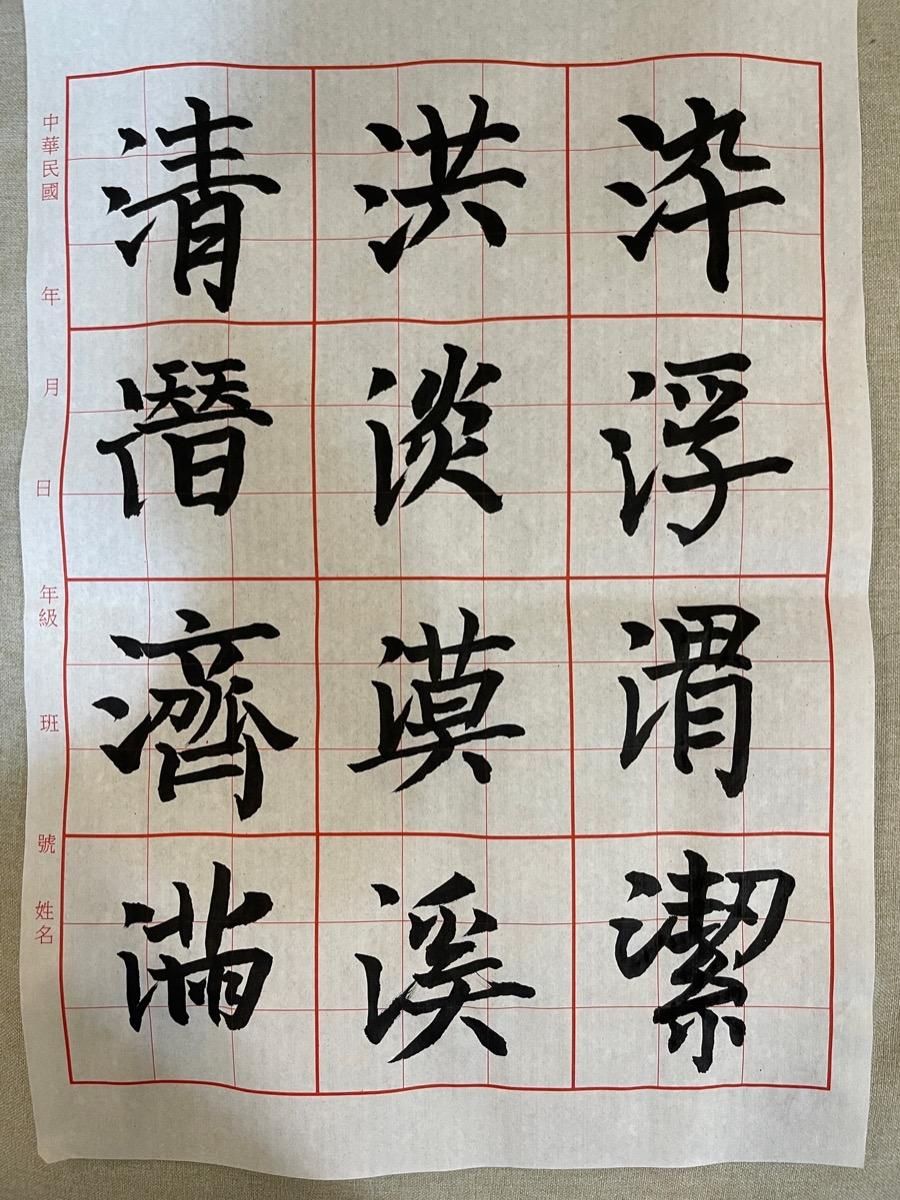 浮渭潔
洪淡漠溪
清潛濟滿
中華民國 年 月 日 年級 班 號 姓名